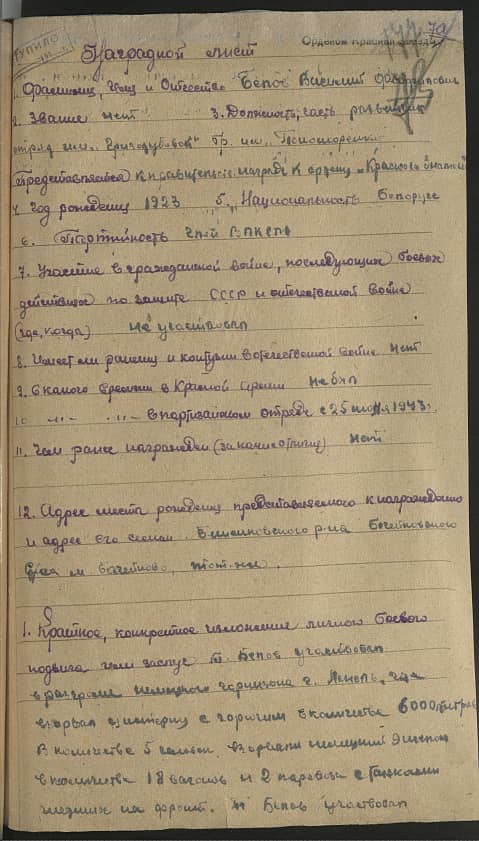 ТУПИЛО
79
Орденом Красная Звезда
Наградной лист
1. Фамилия, Имя и Отчество Белов Василий
2. Звание нет 3. Должность, часть разведчик
отряд им. Гризодубовой бр. им. Пономаренко
Представляется к правительств. награде к ордену "Красное знамя"
4. Год рождения 1923 5. Национальность Белорус
6. Партийность член ВЛКСМ
7. Участие в гражданской войне, последующих боевых
действиях по защите СССР и отечественной войне
(где, когда) не участвовал
8. Имеет ли ранения и контузии в отечественной войне нет
9. С какого времени в Красной Армии не был
10. -"- -"- в партизанском отряде с 25 1943г.
11. Чем ранее награжден (за какие отличия) нет
12. Адрес места рождения представляемого к награждению
и адрес его семьи. р-на Бочейковского
с/са м Бочейково, тот-же.
1. Краткое, конкретное изложение личного боевого
подвига или заслуг т. Белов участвовал
в разгроме немецкого гарнизона г. Лепель, где
взорвал цистерну с горючим в количестве 6000 литров
В количестве 5 человек взорвали немецкий эшелон
в количестве 18 вагонов и 2 паровоза с танками
шедших на фронт. т Белов участвовал